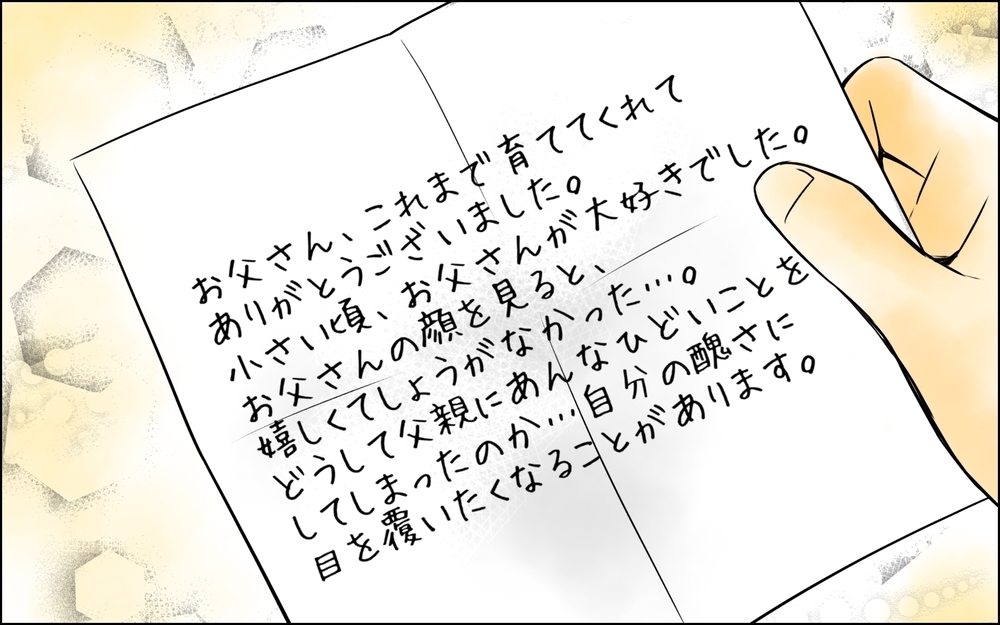 お父さん、これまで育ててくれて
ありがとうございました。
小さい頃、お父さんが大好きでした。
お父さんの顔を見ると、
嬉しくてしょうがなかった…。
どうして父親にあんなひどいことを
してしまったのか…自分の醜さに
目を覆いたくなることがあります。